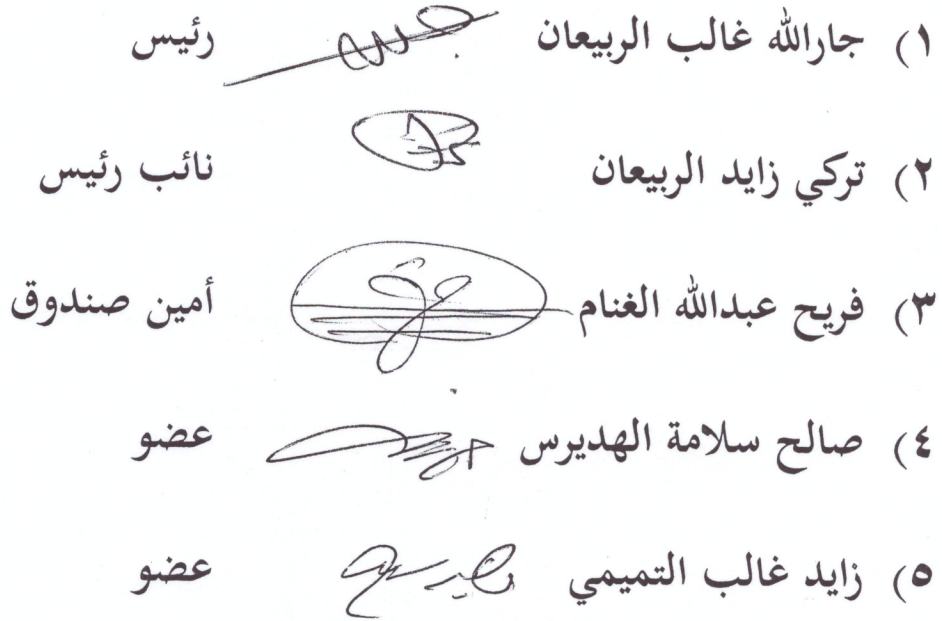 ١) جارالله غالب الربيعان رئيس
٢) تركي زايد الربيعان نائب رئيس
٣) فريح عبدالله الغنام أمين صندوق
٤) صالح سلامة الهديرس عضو
٥) زايد غالب التميمي عضو